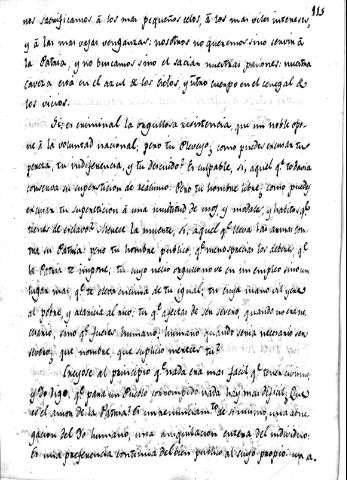 115
nos sacrificamos à los mas pequeños celos, à los mas viles intereses,
y à las mas bajas venganzas: nosotros no queremos sino servir à
la Patria, y no buscamos sino el saciar nuestras pasiones: nuestra
caveza está en el azul de los Cielos, y ntro cuerpo en el cenegal de
los vicios.
Si, es criminal la orgullosa resistencia, que un noble opo-
ne à la voluntad nacional, pero tu Plebeyo, como puedes escusar tu
pereza, tu indiferencia, y tu descuido? Es culpable, si, aquel qe. todavia
conserva su supersticion de realismo. Pero tu hombre libre, como puedes
escusar tu supersticion à una multitud de usos y modales, y habitos qe.
tienes de esclavo? Merece la muerte, si, aquel qe. lleva las armas con-
tra su Patria: pero tu hombre publico, qe. menosprecias los deberes, qe.
la Patria te impone, tu cuyo necio orgullo no ve en un empleo sino un
lugar mas, qe. te eleva encima de tu igual, tu cuya mano vil
al pobre, y acaricia al rico; tu qe. afectas de ser severo, quando no es ne-
cesario, sino qe. fueras humano; humano quando seria necesario ser
severo; que nombre, que suplicio mereces tu?
Creyose al principio qe. nada era mas facil qe. tener
y Yo digo, qe. para un Pueblo corrompido nada hay mas dificil; Que
es el amor de la Patria? Es un renunciamto. de si mismo, una abne-
gacion del Yo humano, una aniquilacion entera del individuo:
Es una preferencia continua del bien publico al suyo propio: un a-